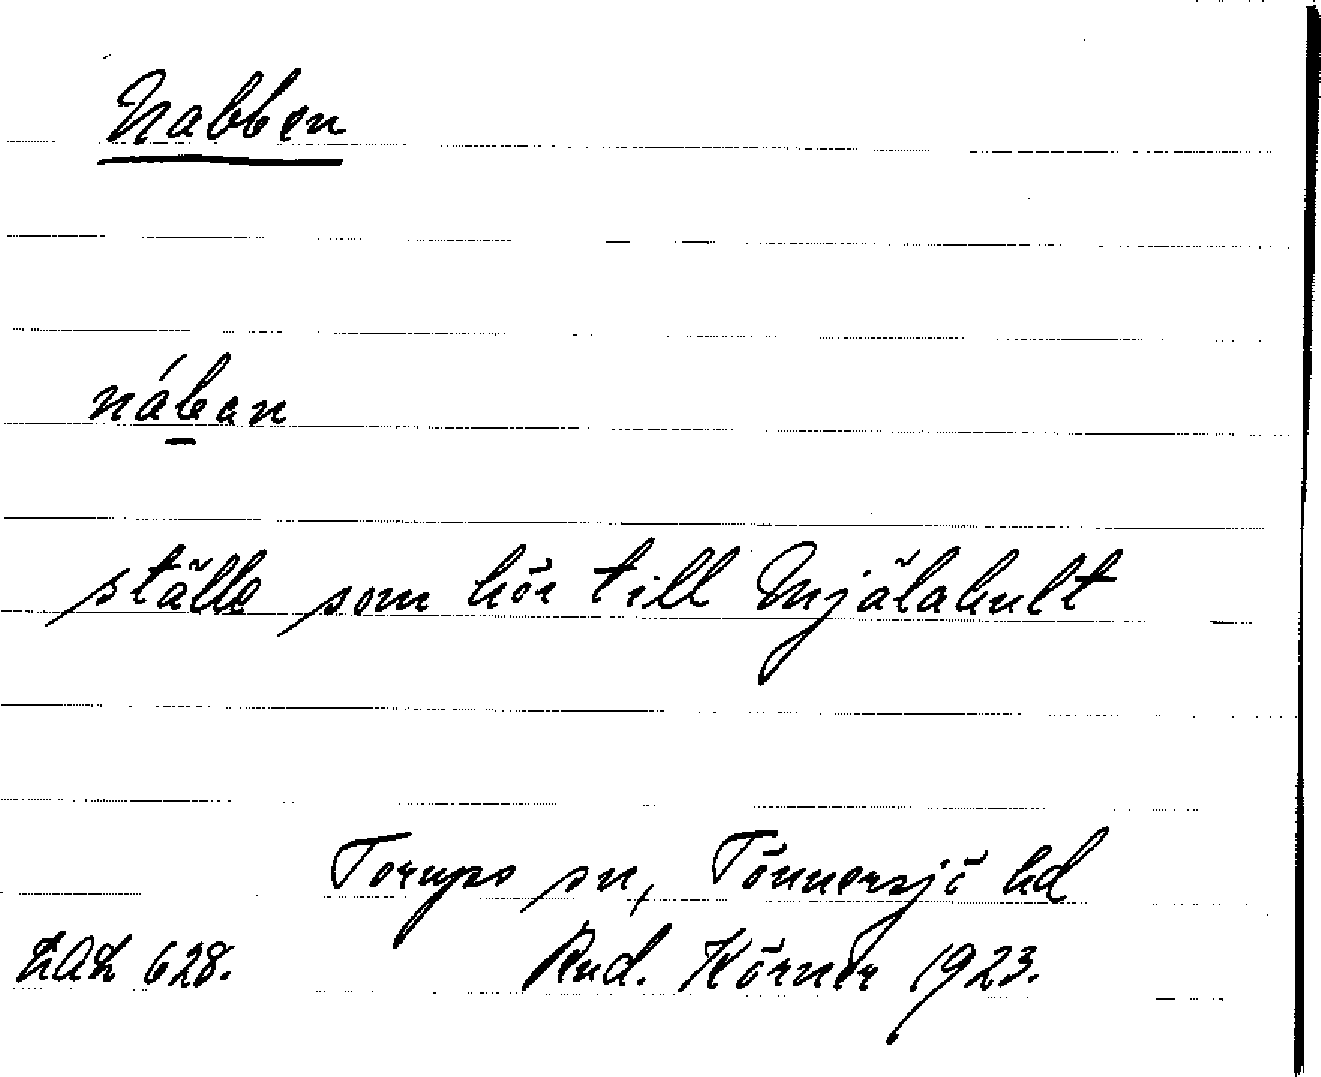 Nabben
náb̲an
ställe som hör till Mjälahult
Torups sn, Tönnersjö hd
LAL 628. Rud. Körner 1923.